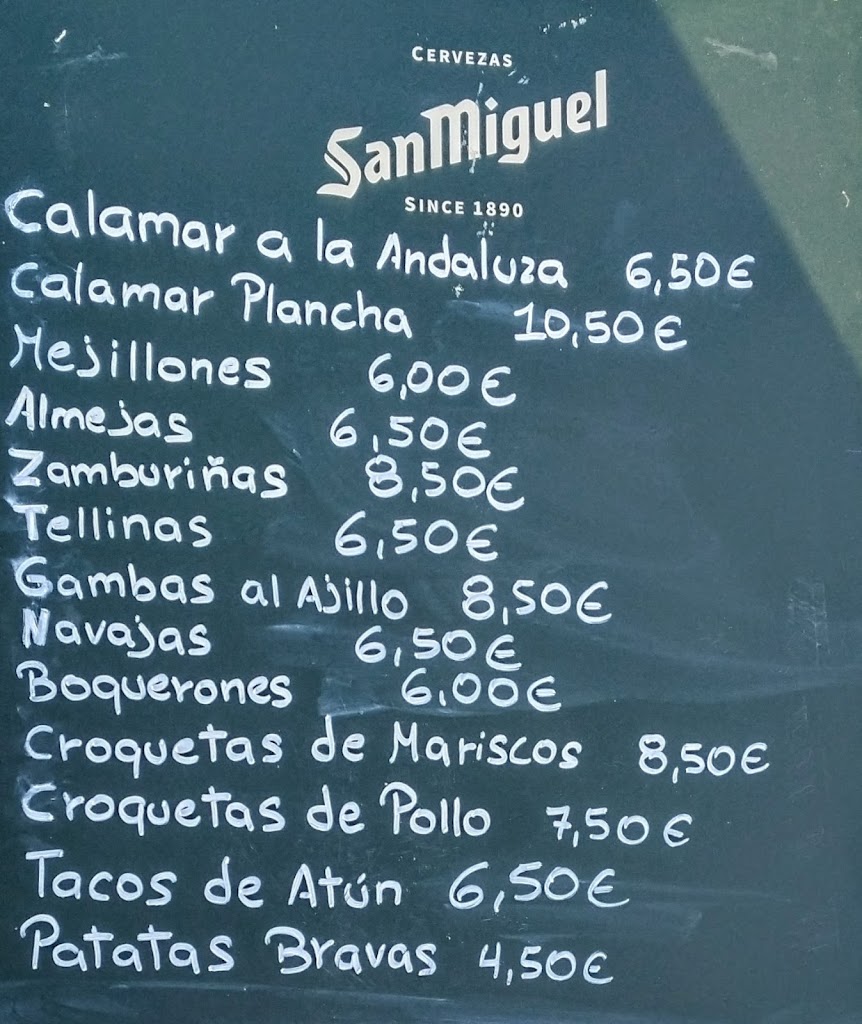 CERVEZAS
SanMiguel
SINCE 1890
Calamar a la Andaluza 6,50€
Calamar Plancha 10,50€
Mejillones 6,00€
Almejas 6,50€
Zamburiñas 8,50€
Tellinas 6,50€
Gambas al Ajillo 8,50€
Navajas 6,50€
Boquerones 6.00€
Croquetas de Mariscos 8,50€
Croquetas de Pollo 7,50€
Tacos de Atún 6,50€
Patatas Bravas 4,50€